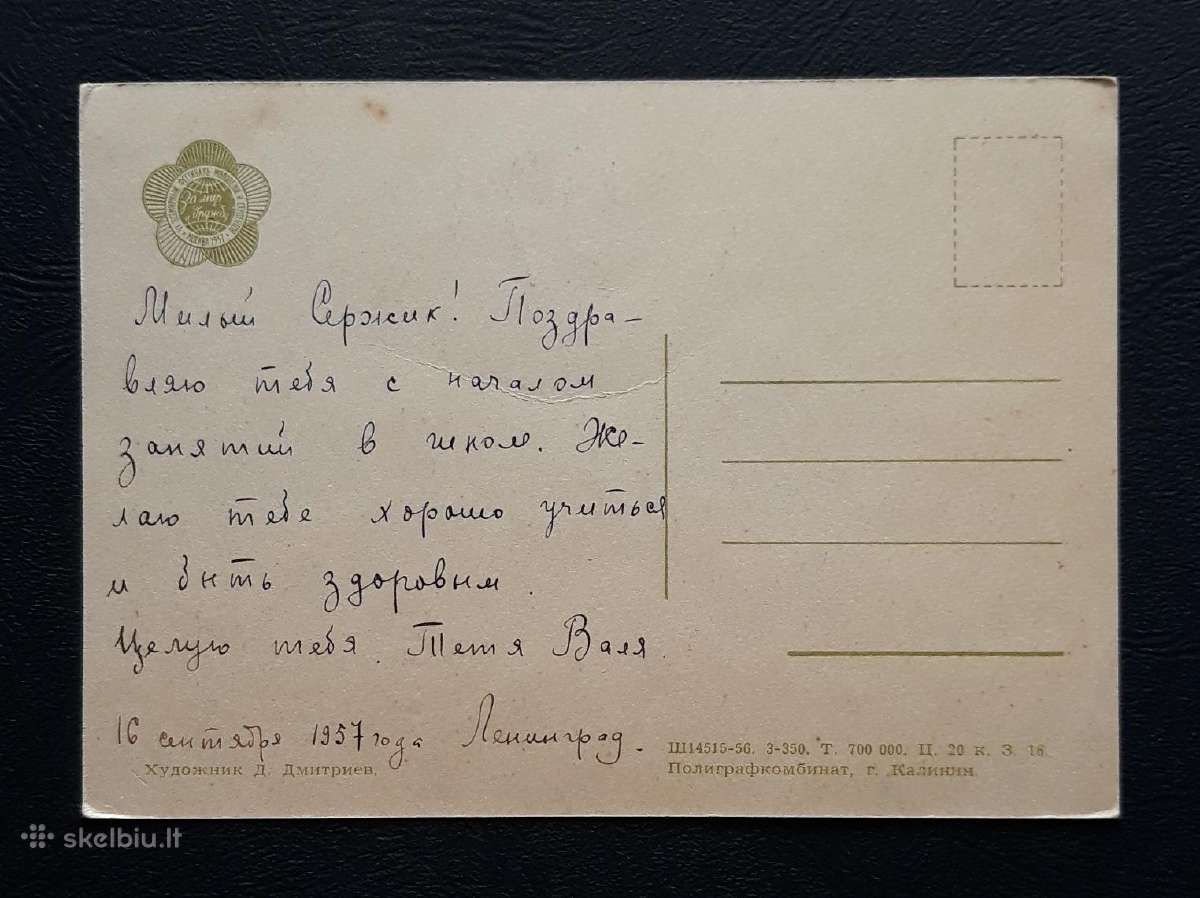 VI ВСЕМИРНЫЙ ФЕСТИВАЛЬ МОЛОДЕЖИ И СТУДЕНТОВ
МОСКВА 1957
За мир
и дружбу
Милый Сержик! Поздра-
вляю тебя с началом
занятий в школе. Же-
лаю тебе хорошо учиться
и быть здоровым.
Целую тебя. Тетя Валя.
16 сентября 1957 года Ленинград.
Художник Д. Дмитриев.
Ш14515-56. З-350. Т. 700 000. Ц. 20 к. З. 18.
Полиграфкомбинат, г. Калинин.
skelbiu.lt